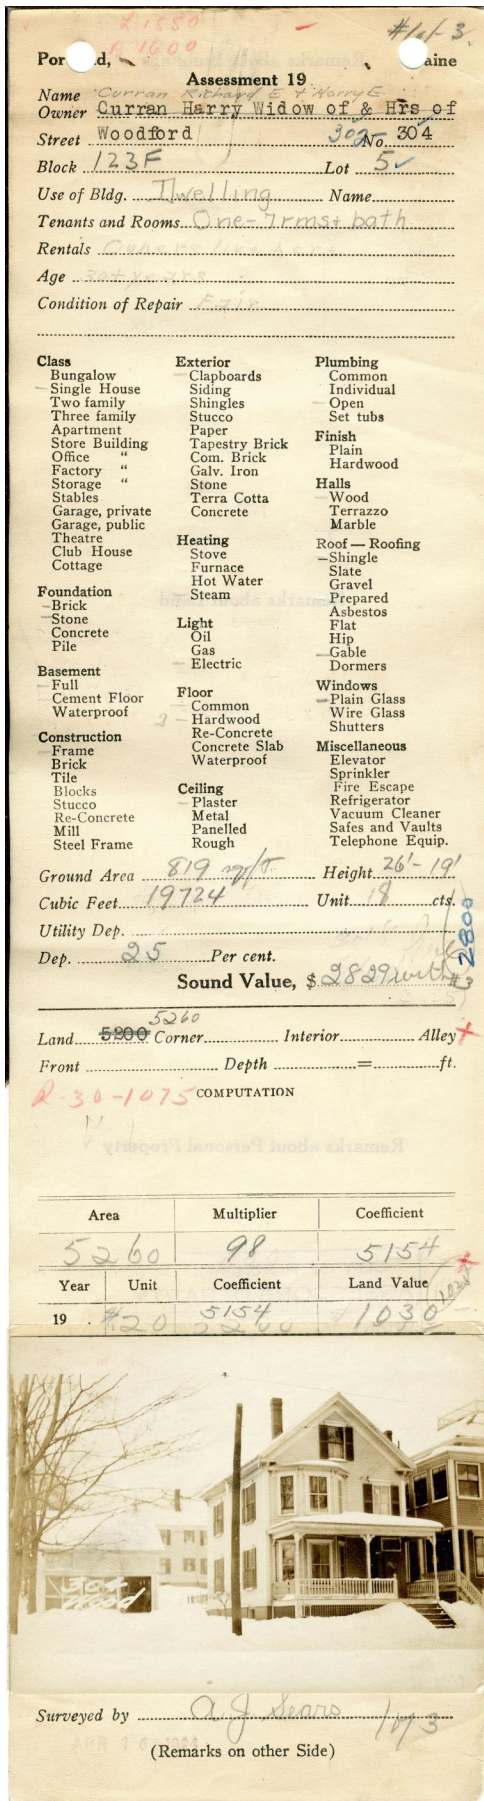 L 1550
B 1600
#1 of 3
Por nd, aine
Assessment 19
Name Curran Richard E & Harry E.
Owner Curran Harry Widow of & Hrs of
Street Woodford 302 No. 304
Block 123F Lot 5 ✓
Use of Bldg. Dwelling Name
Tenants and Rooms One-7rms+ bath
Rentals Owners live here
Age 30+ years
Condition of Repair Fair
Class
Bungalow
Single House
Two family
Three family
Apartment
Store Building
Office "
Factory "
Storage "
Stables
Garage, private
Garage, public
Theatre
Club House
Cottage
Foundation
Brick
Stone
Concrete
Pile
Basement
Full
Cement Floor
Waterproof
Construction
Frame
Brick
Tile
Blocks
Stucco
Re-Concrete
Mill
Steel Frame
Exterior
Clapboards
Siding
Shingles
Stucco
Paper
Tapestry Brick
Com. Brick
Galv. Iron
Stone
Terra Cotta
Concrete
Heating
Stove
Furnace
Hot Water
Steam
Light
Oil
Gas
Electric
Floor
Common
Hardwood
Re-Concrete
Concrete Slab
Waterproof
Ceiling
Plaster
Metal
Panelled
Rough
Plumbing
Common
Individual
Open
Set tubs
Finish
Plain
Hardwood
Halls
Wood
Terrazzo
Marble
Roof — Roofing
Shingle
Slate
Gravel
Prepared
Asbestos
Flat
Hip
Gable
Dormers
Windows
Plain Glass
Wire Glass
Shutters
Miscellaneous
Elevator
Sprinkler
Fire Escape
Refrigerator
Vacuum Cleaner
Safes and Vaults
Telephone Equip.
Ground Area 819 sq/ft. Height 26'-19'
Cubic Feet 19724 Unit 18 cts.
Utility Dep.
2800
Dep. 25 Per cent.
Sound Value, $ 2829 with #3
5260
Land 5200 Corner Interior Alley
Front Depth = ft.
R-30-1075 COMPUTATION
Area Multiplier Coefficient
5260 98 5154
Year Unit Coefficient Land Value
1028
19 . #20 5154 1030
304
Wood
Surveyed by A. J. Sears 1 of 3
(Remarks on other Side)